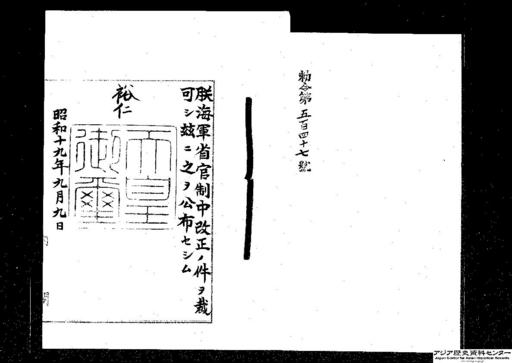 勅令第五百四十七號
朕海軍省官制中改正ノ件ヲ裁
可シ玆ニ之ヲ公布セシム
裕仁
天皇
御璽
昭和十九年九月九日
アジア歴史資料センター
Japan Center for Asian Historical Records